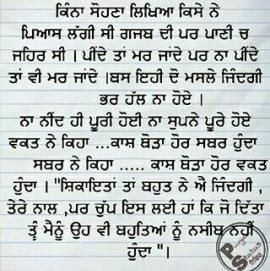 ਕਿੰਨਾ ਸੋਹਣਾ ਲਿਖਿਆ ਕਿਸੇ ਨੇ
ਪਿਆਸ ਲੱਗੀ ਸੀ ਗਜਬ ਦੀ ਪਰ ਪਾਣੀ ਚ
ਜਹਿਰ ਸੀ । ਪੀਂਦੇ ਤਾਂ ਮਰ ਜਾਂਦੇ ਪਰ ਨਾ ਪੀਂਦੇ
ਤਾਂ ਵੀ ਮਰ ਜਾਂਦੇ ।ਬਸ ਇਹੀ ਦੋ ਮਸਲੇ ਜਿੰਦਗੀ
ਭਰ ਹੱਲ ਨਾ ਹੋਏ ।
ਨਾ ਨੀਂਦ ਹੀ ਪੂਰੀ ਹੋਈ ਨਾ ਸੁਪਨੇ ਪੂਰੇ ਹੋਏ
ਵਕਤ ਨੇ ਕਿਹਾ ...ਕਾਸ਼ ਥੋੜਾ ਹੋਰ ਸਬਰ ਹੁੰਦਾ
ਸਬਰ ਨੇ ਕਿਹਾ ..... ਕਾਸ਼ ਥੋੜਾ ਹੋਰ ਵਕਤ
ਹੁੰਦਾ । "ਸ਼ਿਕਾਇਤਾਂ ਤਾਂ ਬਹੁਤ ਨੇ ਐ ਜਿੰਦਗੀ ,
ਤੇਰੇ ਨਾਲ ,ਪਰ ਚੁੱਪ ਇਸ ਲਈ ਹਾਂ ਕਿ ਜੋ ਦਿੱਤਾ
ਤੂੰ ਮੈਨੂੰ ਉਹ ਵੀ ਬਹੁਤਿਆਂ ਨੂੰ ਨਸੀਬ ਨਹੀਂ
ਹੁੰਦਾ "।
Punjabi
Status